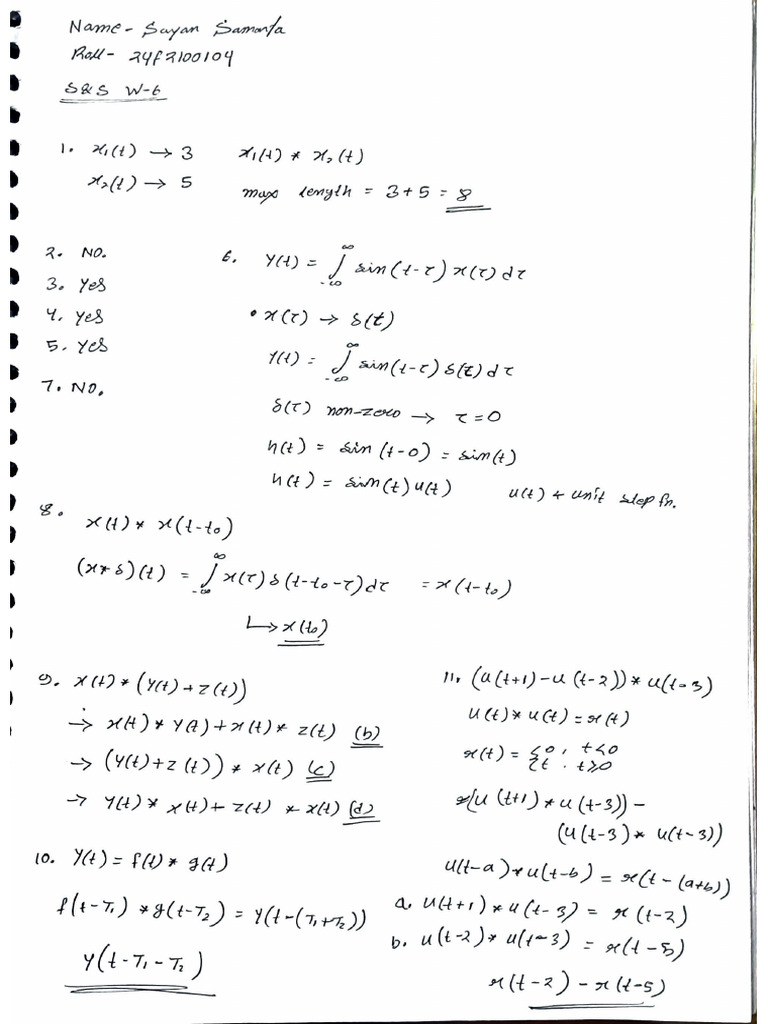 Name - Sayan Samanta
Roll - 24f2100104
S&S W-6
1. x₁(t) → 3
x₂(t) → 5
x₁(t) * x₂(t)
max length = 3+5 = 8
2. NO.
3. Yes
4. Yes
5. Yes
7. NO.
6. y(t) = ∫_{-∞}^{∞} sin(t-τ) x(τ) dτ
• x(τ) → δ(t)
y(t) = ∫_{-∞}^{∞} sin(t-τ) δ(τ) dτ
δ(τ) non-zero → τ = 0
h(t) = sin(t-0) = sin(t)
h(t) = sin(t) u(t) u(t) → unit step fn.
8. x(t) * x(t-t₀)
(x*δ)(t) = ∫_{-∞}^{∞} x(τ) δ(t-t₀-τ) dτ = x(t-t₀)
↳ x(t₀)
9. x(t) * (y(t)+z(t))
→ x(t) * y(t) + x(t) * z(t) (b)
→ (y(t)+z(t)) * x(t) (c)
→ y(t) * x(t) + z(t) * x(t) (d)
10. y(t) = f(t) * g(t)
f(t-T₁) * g(t-T₂) = y(t-(T₁+T₂))
y(t-T₁-T₂)
11. (u(t+1) - u(t-2)) * u(t-3)
u(t) * u(t) = r(t)
r(t) = { 0, t<0
{ t, t≥0
(u(t+1) * u(t-3)) -
(u(t-3) * u(t-3))
u(t-a) * u(t-b) = r(t-(a+b))
a. u(t+1) * u(t-3) = r(t-2)
b. u(t-2) * u(t-3) = r(t-5)
r(t-2) - r(t-5)